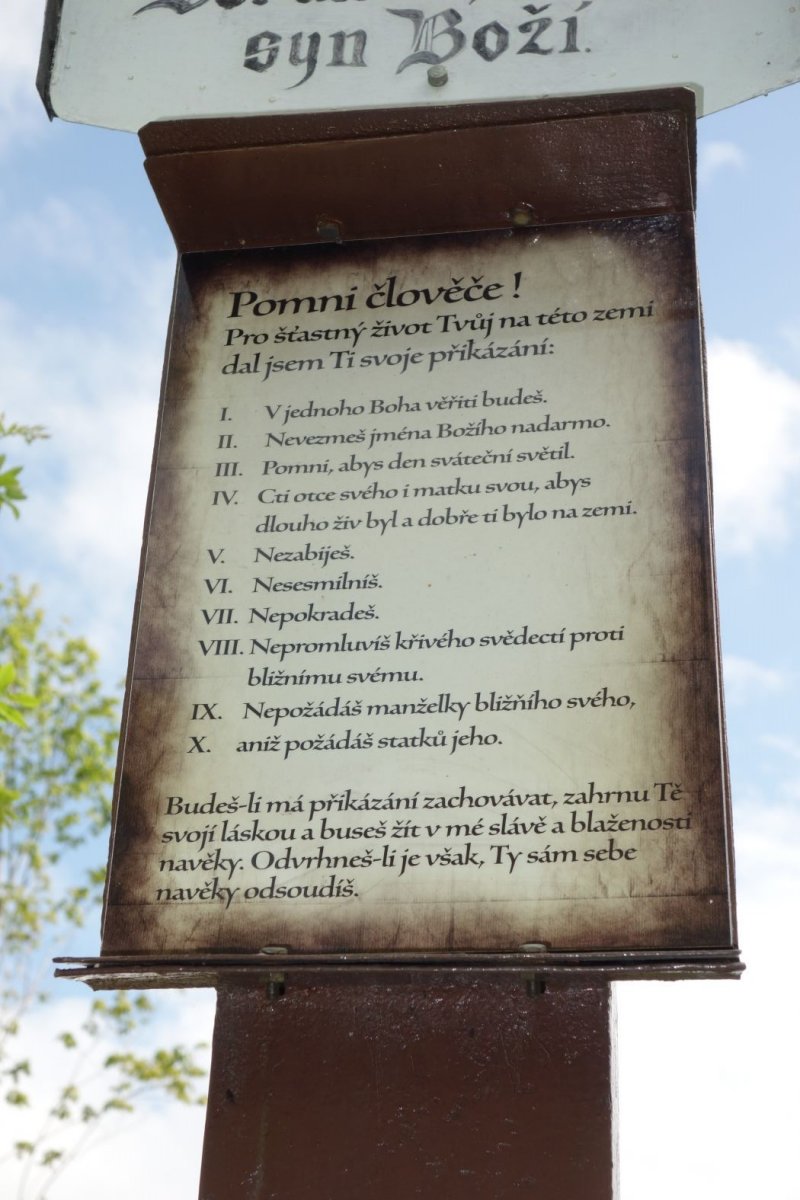 syn Boží.
Pomni člověče !
Pro šťastný život Tvůj na této zemi
dal jsem Ti svoje přikázání:
I. V jednoho Boha věřiti budeš.
II. Nevezmeš jména Božího nadarmo.
III. Pomni, abys den sváteční světil.
IV. Cti otce svého i matku svou, abys
dlouho živ byl a dobře ti bylo na zemi.
V. Nezabiješ.
VI. Nesesmilníš.
VII. Nepokradeš.
VIII. Nepromluvíš křivého svědectí proti
bližnímu svému.
IX. Nepožádáš manželky bližňího svého,
X. aniž požádáš statků jeho.
Budeš-li má přikázání zachovávat, zahrnu Tě
svojí láskou a buseš žít v mé slávě a blaženosti
navěky. Odvrhneš-li je však, Ty sám sebe
navěky odsoudíš.